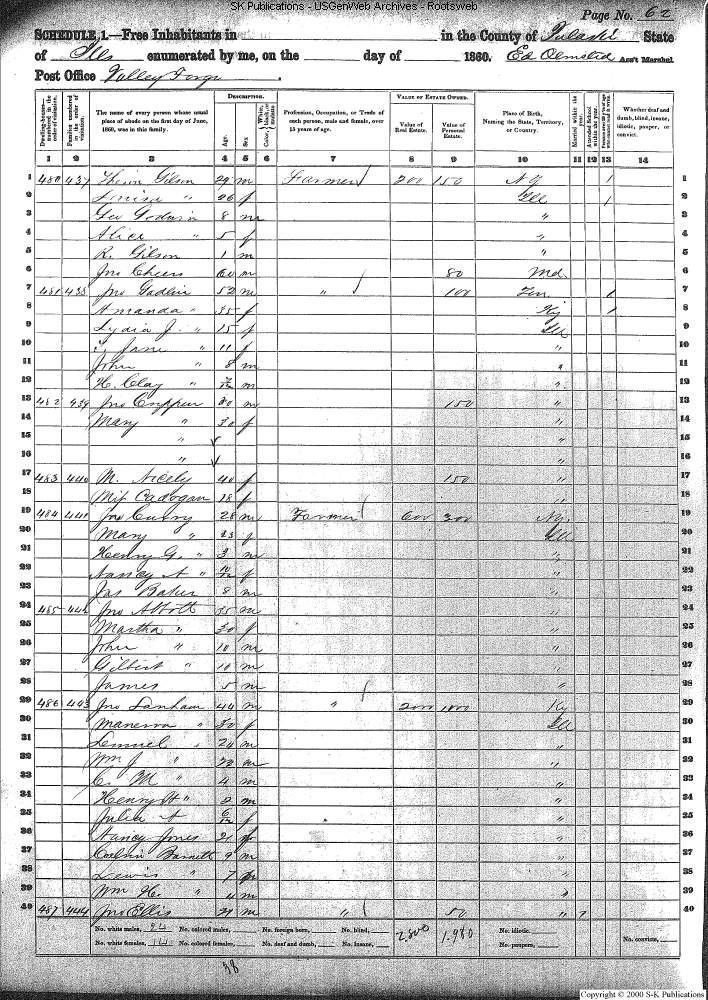 SK Publications - USGenWeb Archives - Rootsweb
Page No. 62
SCHEDULE 1.—Free Inhabitants in in the County of Pulaski State
of Ills enumerated by me, on the day of 1860. Ed Olmsted Ass't Marshal.
Post Office Valley Forge
Dwelling-houses— numbered in the order of visitation. Families numbered in the order of visitation. The name of every person whose usual place of abode on the first day of June, 1860, was in this family. Description. Age. Sex. Color, White, black, or mulatto. Profession, Occupation, or Trade of each person, male and female, over 15 years of age. Value of Estate Owned. Value of Real Estate. Value of Personal Estate. Place of Birth, Naming the State, Territory, or Country. Married within the year. Attended School within the year. Whether deaf and dumb, blind, insane, idiotic, pauper, or convict.
1 2 3 4 5 6 7 8 9 10 11 12 13 14
1 480 437 Gilson 29 m Farmer 200 150 / 1
2 Louisa " 26 f Ill / 2
3 Geo Godwin 8 m " 3
4 Alice " 5 f " 4
5 R. Gilson 1 m " 5
6 Jno Cheers 60 m 80 Md 6
7 481 438 Jno 52 m " 100 Ten / 7
8 Amanda " 35 f Ky / 8
9 Lydia J. " 15 f Ill 9
10 Jane " 11 f " 10
11 John " 8 m " 11
12 H. Clay " m " 12
13 482 439 Jno 30 m 150 " 13
14 Mary " 30 f " 14
15 " " 15
16 " " 16
17 483 440 M. Nicely 40 f 150 " 17
18 Cadogan 18 f " 18
19 484 441 Jno Curry 28 m Farmer 600 300 Ky 19
20 Mary " 23 f Ill 20
21 Henry G. " 3 m " 21
22 Nancy A " 10/12 f " 22
23 Jas Baker 8 m " 23
24 485 442 Jno Abbott 35 m " 24
25 Martha " 30 f " 25
26 John " 10 m " 26
27 Gilbert " 10 m " 27
28 James 5 m " 28
29 486 443 Jno Lanham 44 m " 2000 1000 Ky 29
30 Manerva " 30 f Ill 30
31 Lemuel " 24 m " 31
32 Wm J. " 22 m " 32
33 C. M " 4 m " 33
34 Henry H " 2 m " 34
35 Julia A 6/12 f " 35
36 Nancy Jones 21 f " 36
37 Calvin Barnett 9 m " 37
38 Lewis " 7 m " 38
39 Wm H. " 4 m " 39
40 487 444 Jno Ellis 21 m " 50 " 40
No. white males, 24 No. colored males, No. foreign born, No. blind, 2800 1.980 No. idiotic,
No. white females, 14 No. colored females, No. deaf and dumb, No. insane, No. paupers, No. convicts,
38
Copyright © 2000 S-K Publications